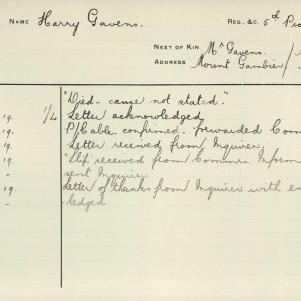 NAME Harry Gavens. REG., &C. 5th Pio
NEXT OF KIN Mr Gavens.
ADDRESS Mount Gambier
"Died - cause not stated."
19. 1/4 Letter acknowledged
19. P/Cable confirmed - forwarded Com
19. Letter received from Inquirer.
19. "Slip received from Commn. Inform
" sent Inquirer
19. Letter of thanks from Inquirer with en
" ledged